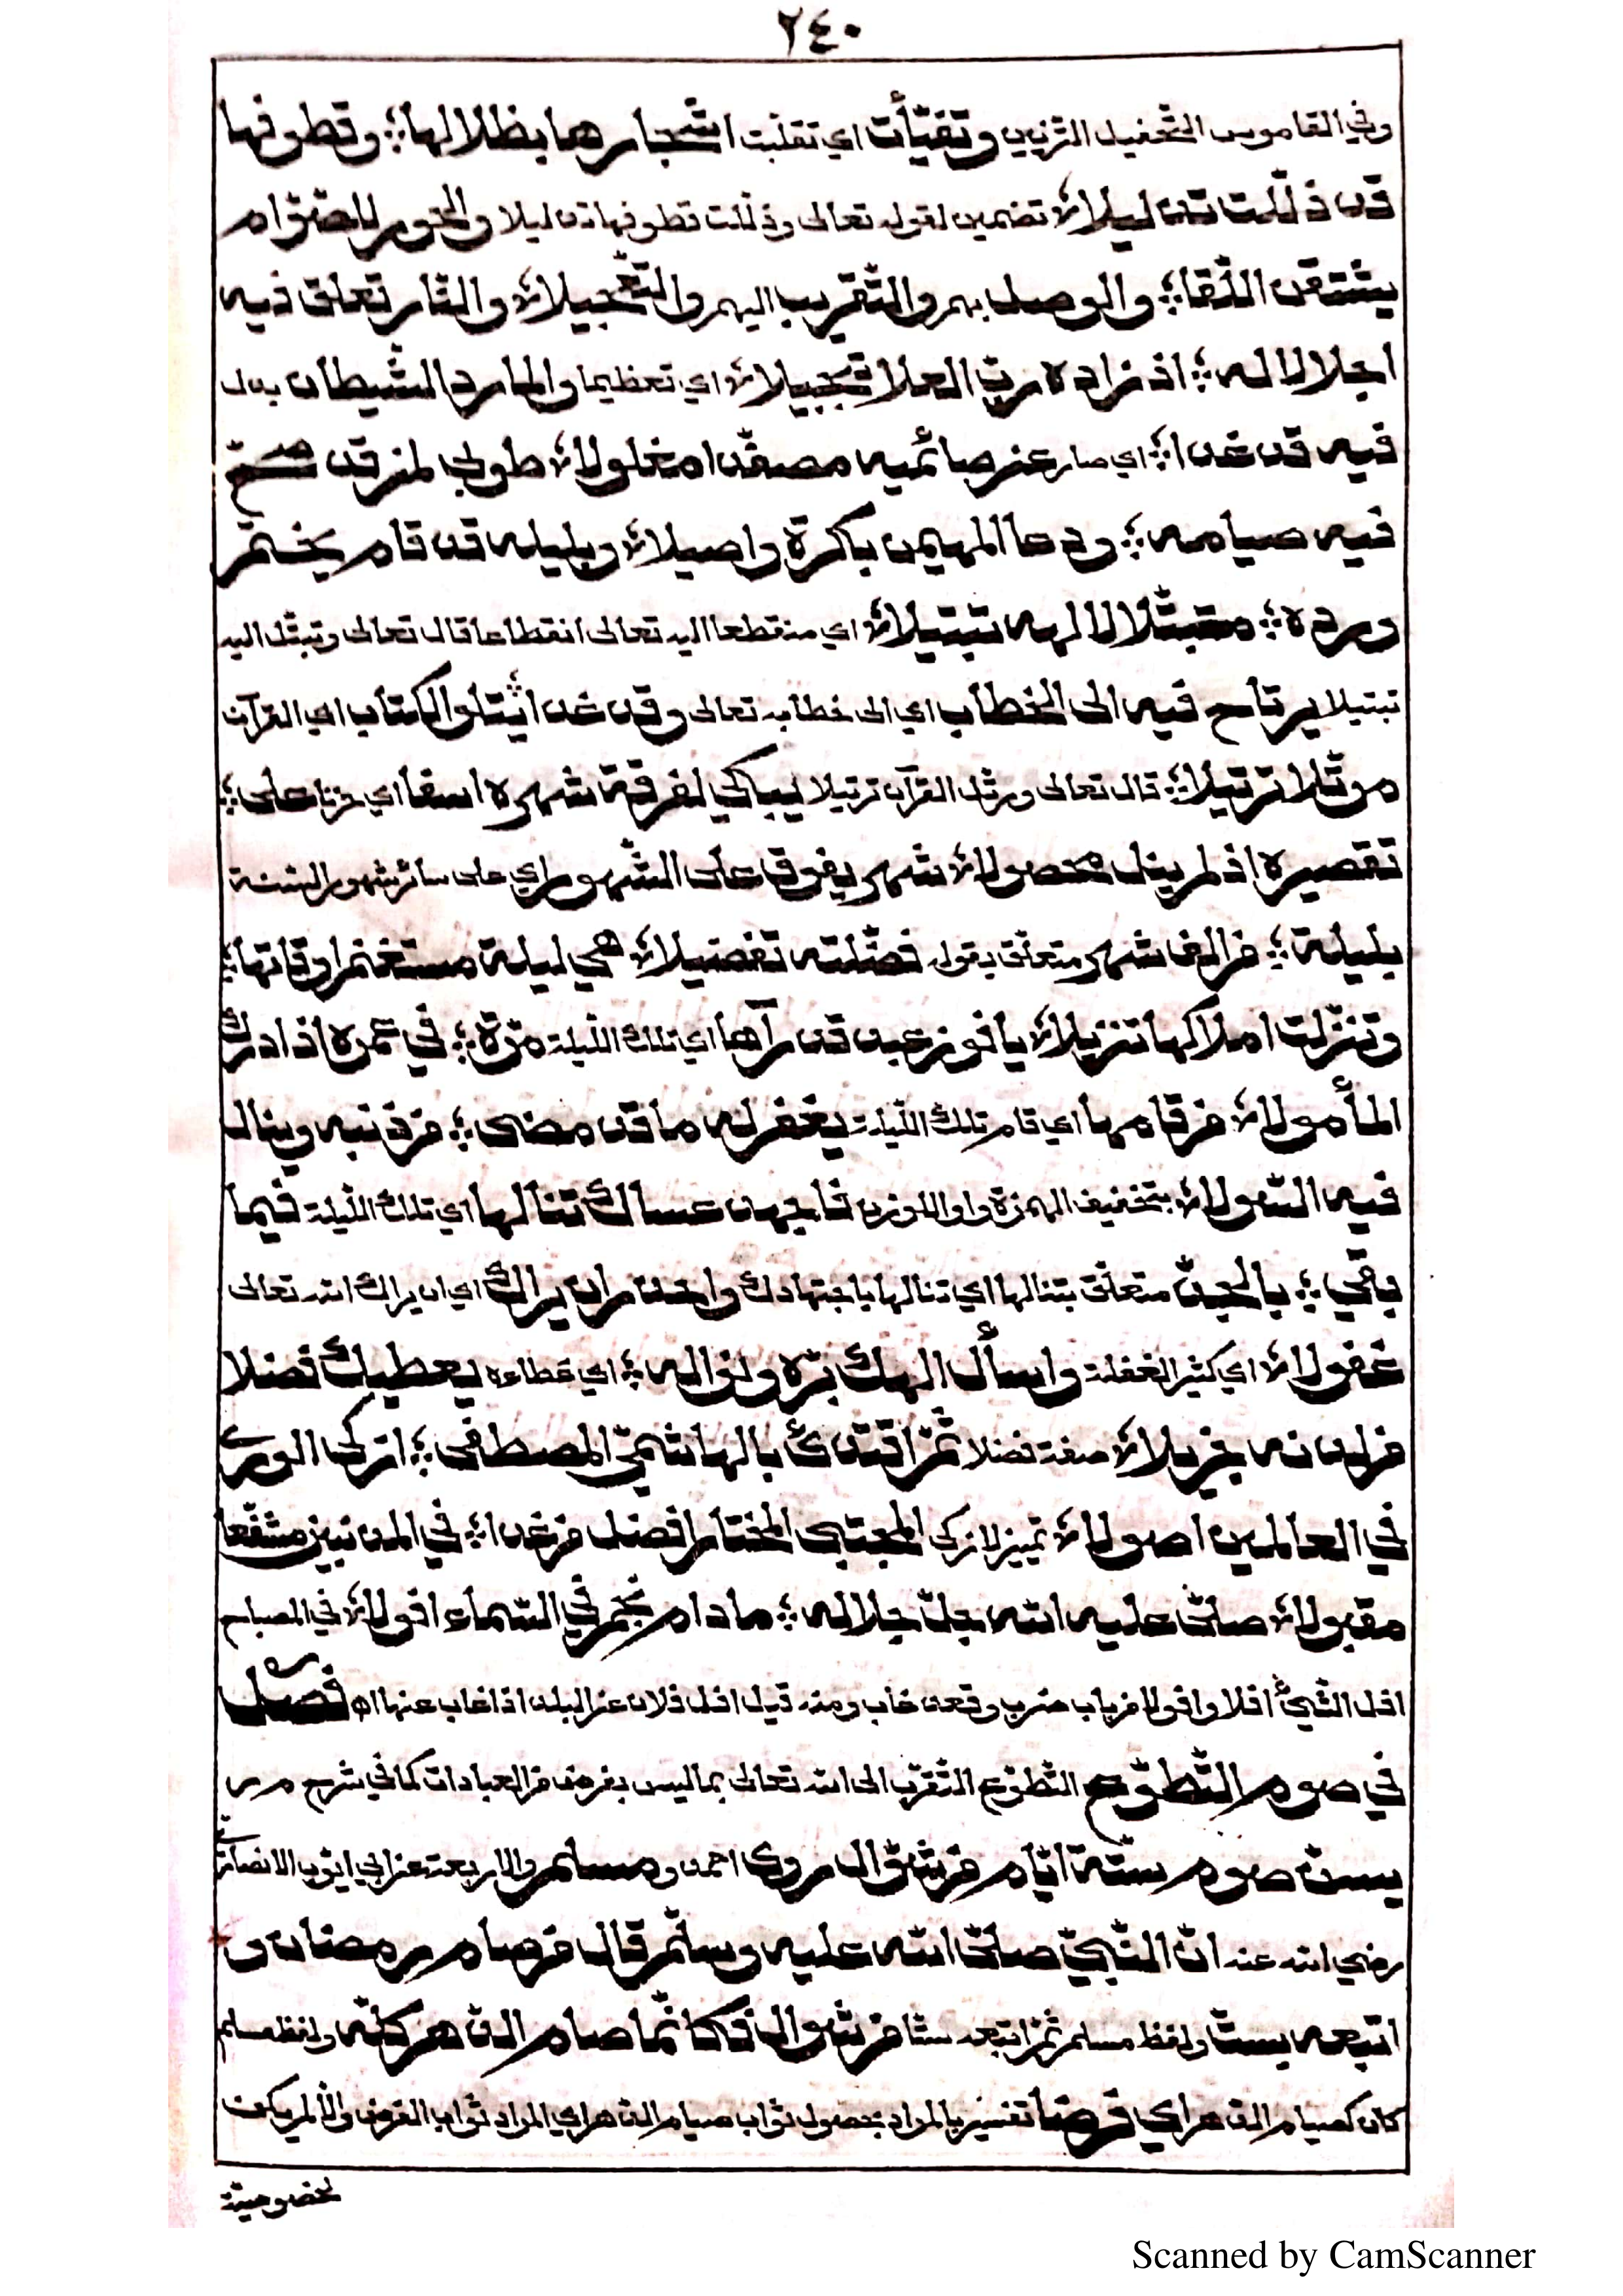 ٢٤٠
وفي القاموس التحفيل التزيين وتفيّأت اي تقلّبت اشجارها بظلالها؛ وقطوفها
قد ذلّلت تذليلا؛ تضمين لقوله تعالى وذلّلت قطوفها تذليلا والحور للصّوّام
يشتقن اللّقا؛ والوصل بهم والتّقريب اليهم والتّعجيلا؛ والنّار تغلق فيه
اجلالا له؛ اذ زاده ربّ العلا تبجيلا؛ اي تعظيما والمارد الشّيطان بدل
فيه قد غدا؛ اي صار عن صائميه مصفّدا مغلولا؛ طوبى لمن قد صحّ
فيه صيامه؛ ودعا المهيمن باكرة واصيلا؛ وبليله قد قام يختم
ورده؛ متبتّلا لالهه تبتيلا؛ اي منقطعا اليه تعالى انقطاعا قال تعالى وتبتّل اليه
تبتيلا يرتاح فيه الى الخطاب اي الى خطابه تعالى وقد غدا؛ يتلو الكتاب اي القرآن
مرتّلا ترتيلا؛ قال تعالى ورتّل القرآن ترتيلا يبكي لفرقة شهره اسفا اي حزنا على؛
تقصيره اذ لم ينل محصولا؛ شهر يفوق على الشّهور اي على سائر شهور السّنة
بليلة؛ من الف شهر متعلّق بقوله فضّلته تفضيلا؛ هي ليلة مستغنم اوقاتها؛
وتنزّلت املاكها تنزيلا؛ يا فوز عبد قد رآها اي تلك اللّيلة مرّة؛ في عمره اذ ادرك
المأمولا؛ من قامها اي قام تلك اللّيلة يغفر له ما قد مضى؛ من ذنبه وينال
فيه السّولا؛ بتخفيف الهمزة واوا للوزن فاجهد عساك تنالها اي تلك اللّيلة فيما
بقي؛ بالجدّ متعلّق بتنالها اي تنالها باجتهادك واحذر ان يراك اي ان يراك الله تعالى
غفولا؛ اي كثير الغفلة واسأل الهك برّه ونواله؛ اي عطاءه يعطيك فضلا
من لدنه جزيلا؛ صفة فضلا ثمّ اقتدئ بالهاشميّ المصطفى؛ ازكى الورى
في العالمين اصولا؛ تمييز لازكى المجتبى المختار افضل من غدا؛ في المذنبين مشفّعا
مقبولا؛ صلّى عليه الله جلّ جلاله؛ ما دام نجم في السّماء افولا؛ في المصباح
افل الشّيئ افلا وافولا من باب ضرب وقعد غاب ومنه قيل افل فلان عن البلد اذا غاب عنها اه فصل
في صوم التّطوّع التّطوّع التّقرّب الى الله تعالى بما ليس بفرض من العبادات كما في شرح م ر
يسنّ صوم ستّة ايّام من شوّال روى احمد ومسلم والاربعة عن ابي ايّوب الانصاريّ
رضي الله عنه انّ النّبيّ صلّى الله عليه وسلّم قال من صام رمضان و
اتبعه بستّ ولفظ مسلم ثمّ اتبعه ستّا من شوال فكانّما صام الدّهر كلّه ولفظ مسلم
كان كصيام الدّهر اي فرضا تفسير بالمراد بحصول ثواب صيام الدّهر اي المراد ثواب الفرض والّا لم يكن
لخصوصيّة
Scanned by CamScanner